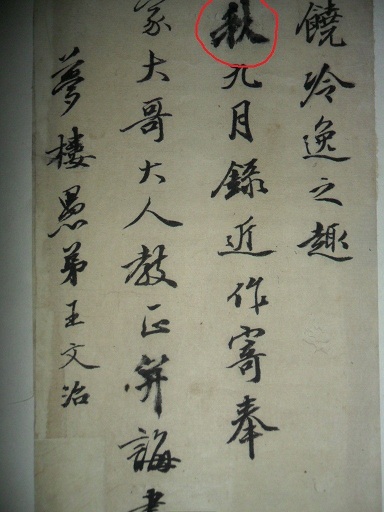 饒冷逸之趣
秋九月錄近作寄奉
大哥大人教正并誨
夢樓愚弟王文治